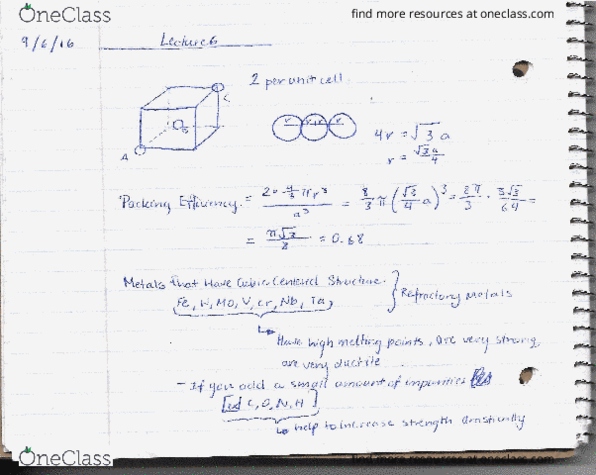 OneClass
find more resources at oneclass.com
9/6/16
Lecture 6
2 per unit cell.
C
B
A
r r r r
4r = √3 a
r = √3 a/4
Packing Efficiency = 2 · 4/3 πr³ / a³ = 8/3 π (√3/4 a)³ = 8π/3 · 3√3/64 =
= π√3/8 = 0.68
Metals that Have Cubic Centered Structure.
Fe, W, Mo, V, Cr, Nb, Ta,
Refractory Metals
Have high melting points, are very strong,
are very ductile
- If you add a small amount of impurities
[C, O, N, H]
help to increase strength drastically
OneClass
find more resources at oneclass.com